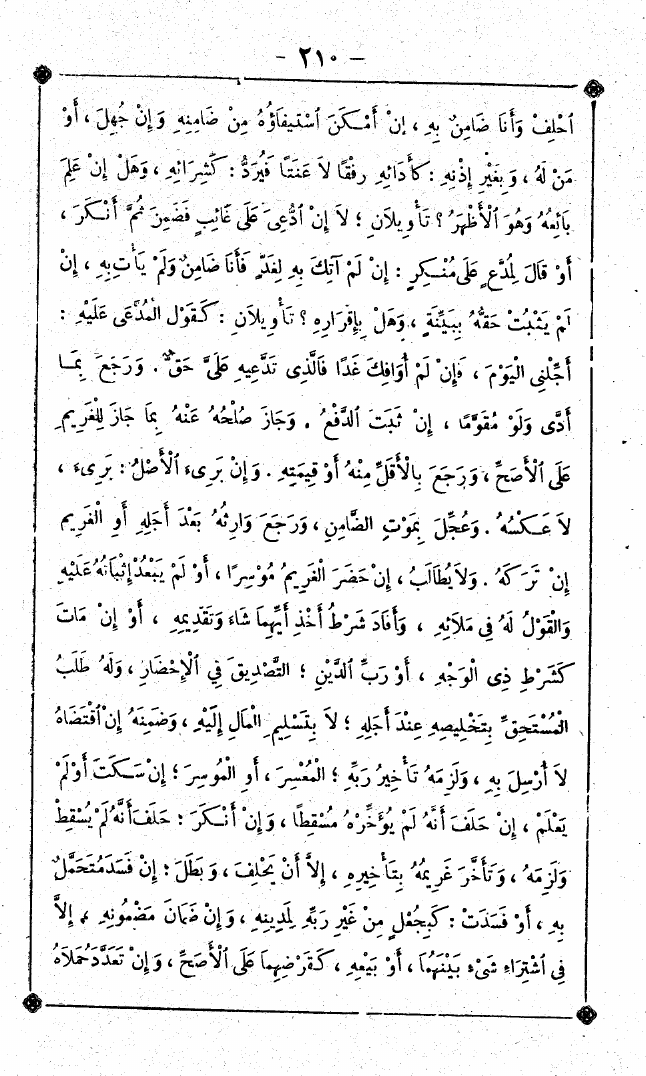 - ٢١٠ -
اُحْلِفْ وَأَنَا ضَامِنٌ بِهِ ، إِنْ أَمْكَنَ اُسْتِيفَاؤُهُ مِنْ ضَامِنِهِ وَإِنْ جُهِلَ ، أَوْ
مَنْ لَهُ ، وَبِغَيْرِ إِذْنِهِ : كَأَدَائِهِ رِفْقًا لاَ عَنَتًا فَيُرَدُّ : كَشِرَائِهِ ، وَهَلْ إِنْ عَلِمَ
بَائِعُهُ وَهُوَ اُلْأَظْهَرُ ؟ تَأْوِيلاَنِ ؛ لاَ إِنْ اُدُّعِىَ عَلَى غَائِبٍ فَضَمِنَ ثُمَّ أَنْكَرَ ،
أَوْ قَالَ لِمُدَّعٍ عَلَى مُنْكِرٍ : إِنْ لَمْ آتِكَ بِهِ لِغَدٍ فَأَنَا ضَامِنٌ وَلَمْ يَأْتِ بِهِ ، إِنْ
لَمْ يَثْبُتْ حَقُّهُ بِبَيِّنَةٍ ، وَهَلْ بِإِقْرَارِهِ ؟ تَأْوِيلاَنِ : كَقَوْلِ اُلْمُدَّعَى عَلَيْهِ :
أَجِّلْنِى اُلْيَوْمَ ، فَإِنْ لَمْ أُوَافِكَ غَدًا فَالَّذِى تَدَّعِيهِ عَلَىَّ حَقٌّ . وَرَجَعَ بِمَا
أَدَّى وَلَوْ مُقَوَّمًا ، إِنْ ثَبَتَ اُلدَّفْعُ . وَجَازَ صُلْحُهُ عَنْهُ بِمَا جَازَ لِلْغَرِيمِ
عَلَى اُلْأَصَحِّ ، وَرَجَعَ بِالْأَقَلِّ مِنْهُ أَوْ قِيمَتِهِ . وَإِنْ بَرِىءَ اُلْأَصْلُ : بَرِىءَ ،
لاَ عَكْسُهُ . وَعُجِّلَ بِمَوْتِ الضَّامِنِ ، وَرَجَعَ وَارِثُهُ بَعْدَ أَجَلِهِ أَوِ الْغَرِيمِ
إِنْ تَرَكَهُ . وَلاَ يُطَالَبُ ، إِنْ حَضَرَ الْغَرِيمُ مُوسِرًا ، أَوْ لَمْ يَبْعُدْ إِثْبَاتُهُ عَلَيْهِ
وَالْقَوْلُ لَهُ فِى مَلاَئِهِ ، وَأَفَادَ شَرْطُ أَخْذِ أَيِّهِمَا شَاءَ وَتَقْدِيمِهِ ، أَوْ إِنْ مَاتَ
كَشَرْطِ ذِى الْوَجْهِ ، أَوْ رَبِّ اُلدَّيْنِ ؛ التَّصْدِيقَ فِي اُلْإِحْضَارِ ، وَلَهُ طَلَبُ
الْمُسْتَحِقِّ بِتَخْلِيصِهِ عِنْدَ أَجَلِهِ ؛ لاَ بِتَسْلِيمِ الْمَالِ إِلَيْهِ ، وَضَمِنَهُ إِنْ اُقْتَضَاهُ
لاَ أُرْسِلَ بِهِ ، وَلَزِمَهُ تَأْخِيرُ رَبِّهِ ؛ الْمُعْسِرَ ، أَوِ الْمُوسِرَ ؛ إِنْ سَكَتَ أَوْ لَمْ
يَعْلَمْ ، إِنْ حَلَفَ أَنَّهُ لَمْ يُؤَخِّرْهُ مُسْقِطًا ، وَإِنْ أَنْكَرَ : حَلَفَ أَنَّهُ لَمْ يُسْقِطْ
وَلَزِمَهُ ، وَتَأَخَّرَ غَرِيمُهُ بِتَأْخِيرِهِ ، إِلاَّ أَنْ يَحْلِفَ ، وَبَطَلَ : إِنْ فَسَدَ مُتَحَمَّلٌ
بِهِ ، أَوْ فَسَدَتْ : كَبِجُعْلٍ مِنْ غَيْرِ رَبِّهِ لِمَدِينِهِ ، وَإِنْ ضَمَانَ مَضْمُونِهِ ، إِلاَّ
فِي اُشْتِرَاءِ شَىْءٍ بَيْنَهُمَا ، أَوْ بَيْعِهِ ، كَقَرْضِهِمَا عَلَى اُلْأَصَحِّ ، وَإِنْ تَعَدَّدَ حُمَلاَهُ